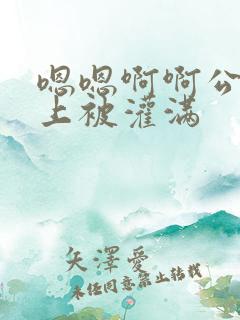 嗯嗯啊啊公
上被灌满
矢澤愛
未经同意禁止转载